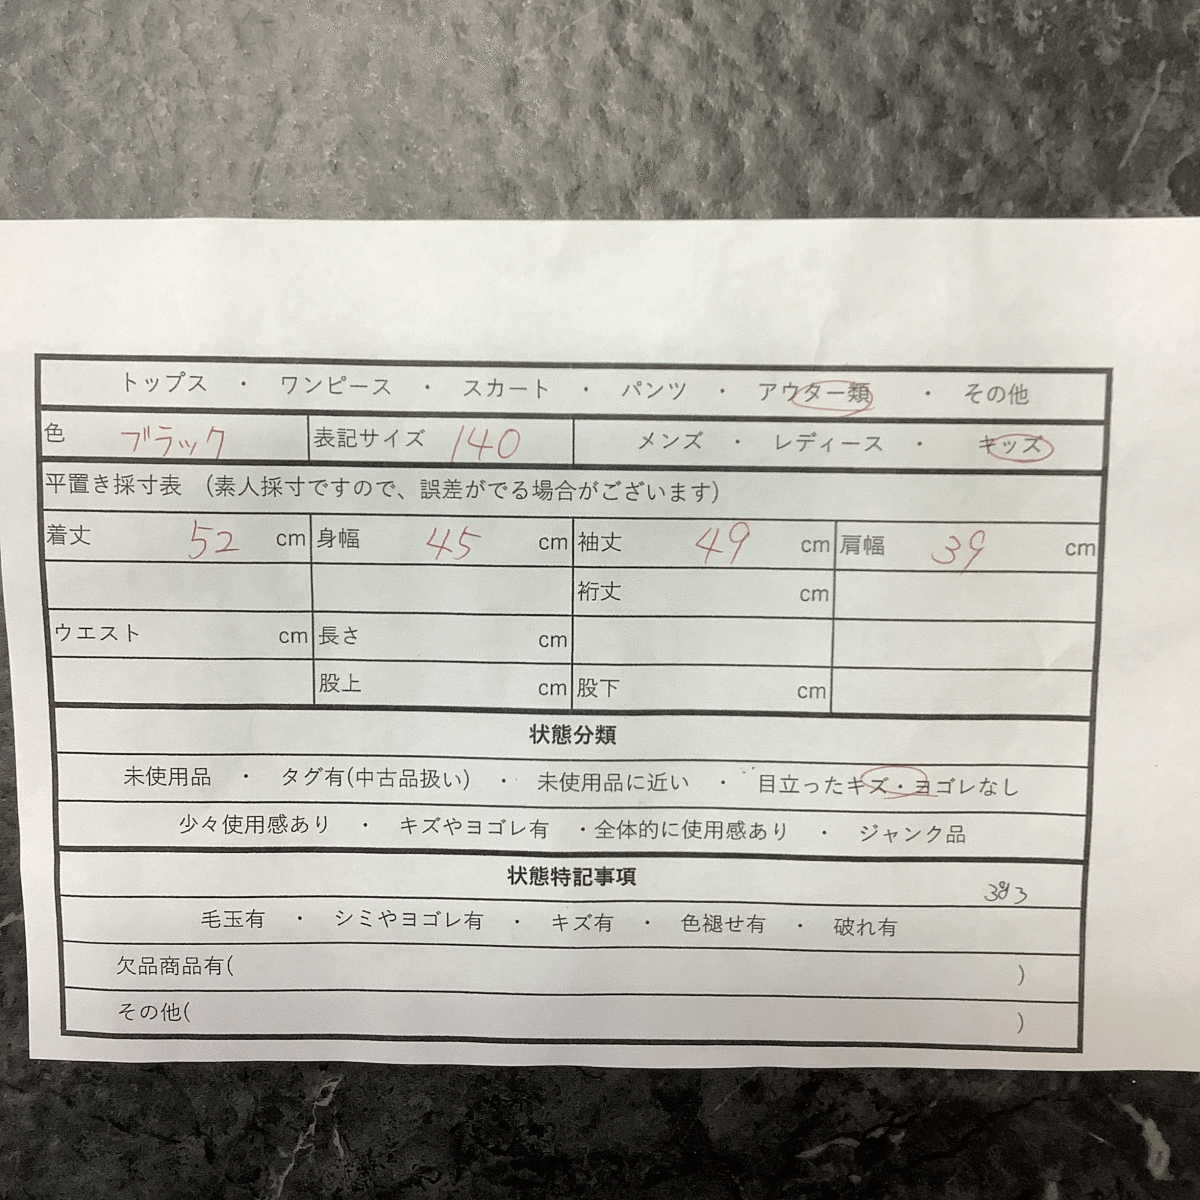 トップス ・ ワンピース ・ スカート ・ パンツ ・ アウター類 ・ その他
色 ブラック 表記サイズ 140 メンズ ・ レディース ・ キッズ
平置き採寸表 （素人採寸ですので、誤差がでる場合がございます）
着丈 52 cm 身幅 45 cm 袖丈 49 cm 肩幅 39 cm
裄丈 cm
ウエスト cm 長さ cm
股上 cm 股下 cm
状態分類
未使用品 ・ タグ有(中古品扱い) ・ 未使用品に近い ・ 目立ったキズ・ヨゴレなし
少々使用感あり ・ キズやヨゴレ有 ・全体的に使用感あり ・ ジャンク品
状態特記事項
393
毛玉有 ・ シミやヨゴレ有 ・ キズ有 ・ 色褪せ有 ・ 破れ有
欠品商品有( )
その他( )